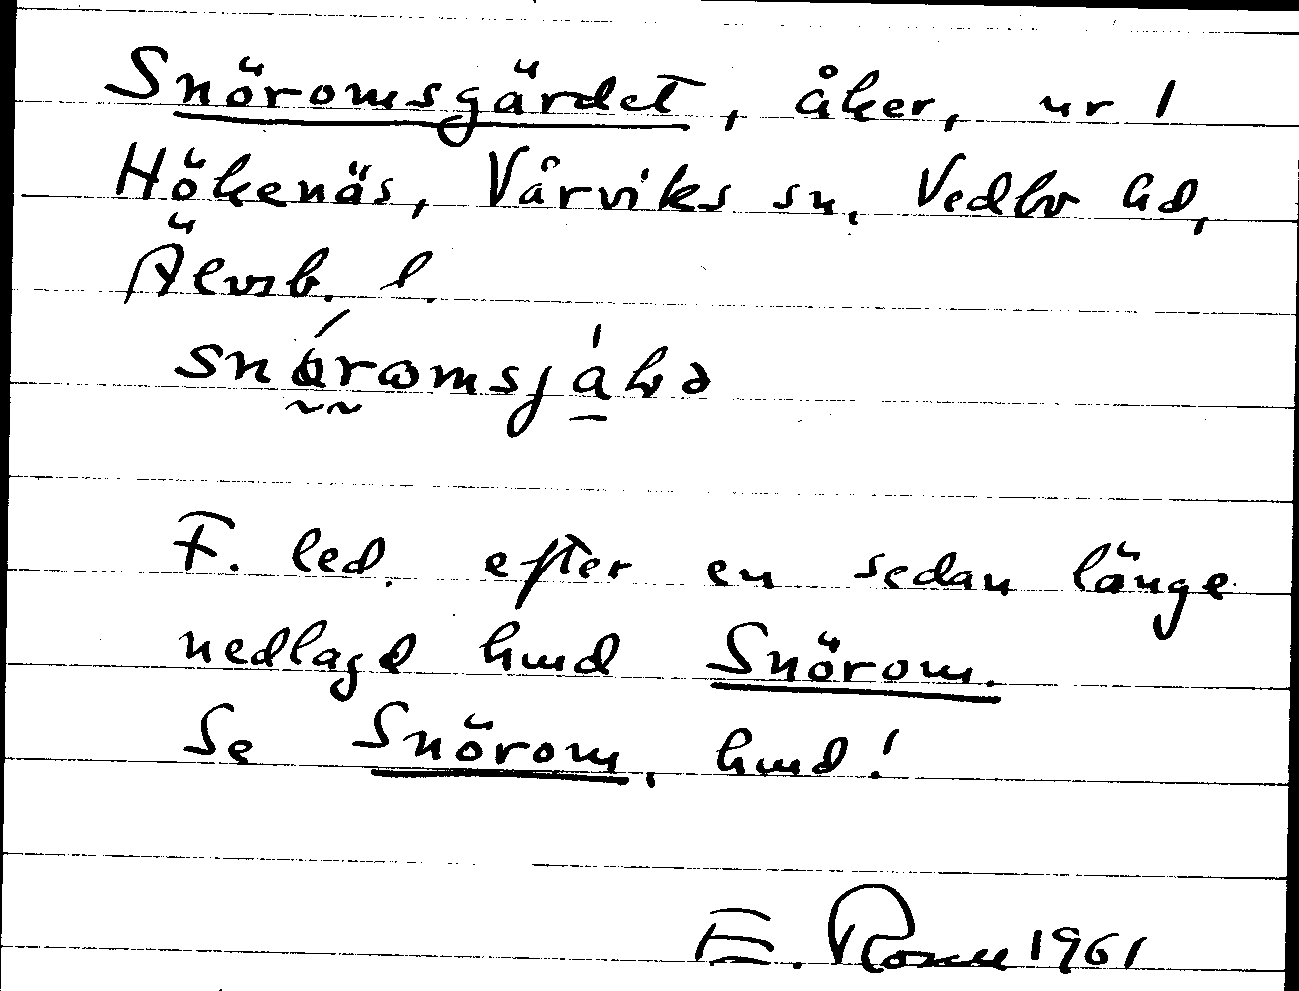 Snöromsgärdet, åker, nr 1
Hökenäs, Vårviks sn, Vedbo hd,
Älvsb. l.
F. led. efter en sedan länge
nedlagd hmd Snörom.
Se Snörom, hmd!
E. 1961